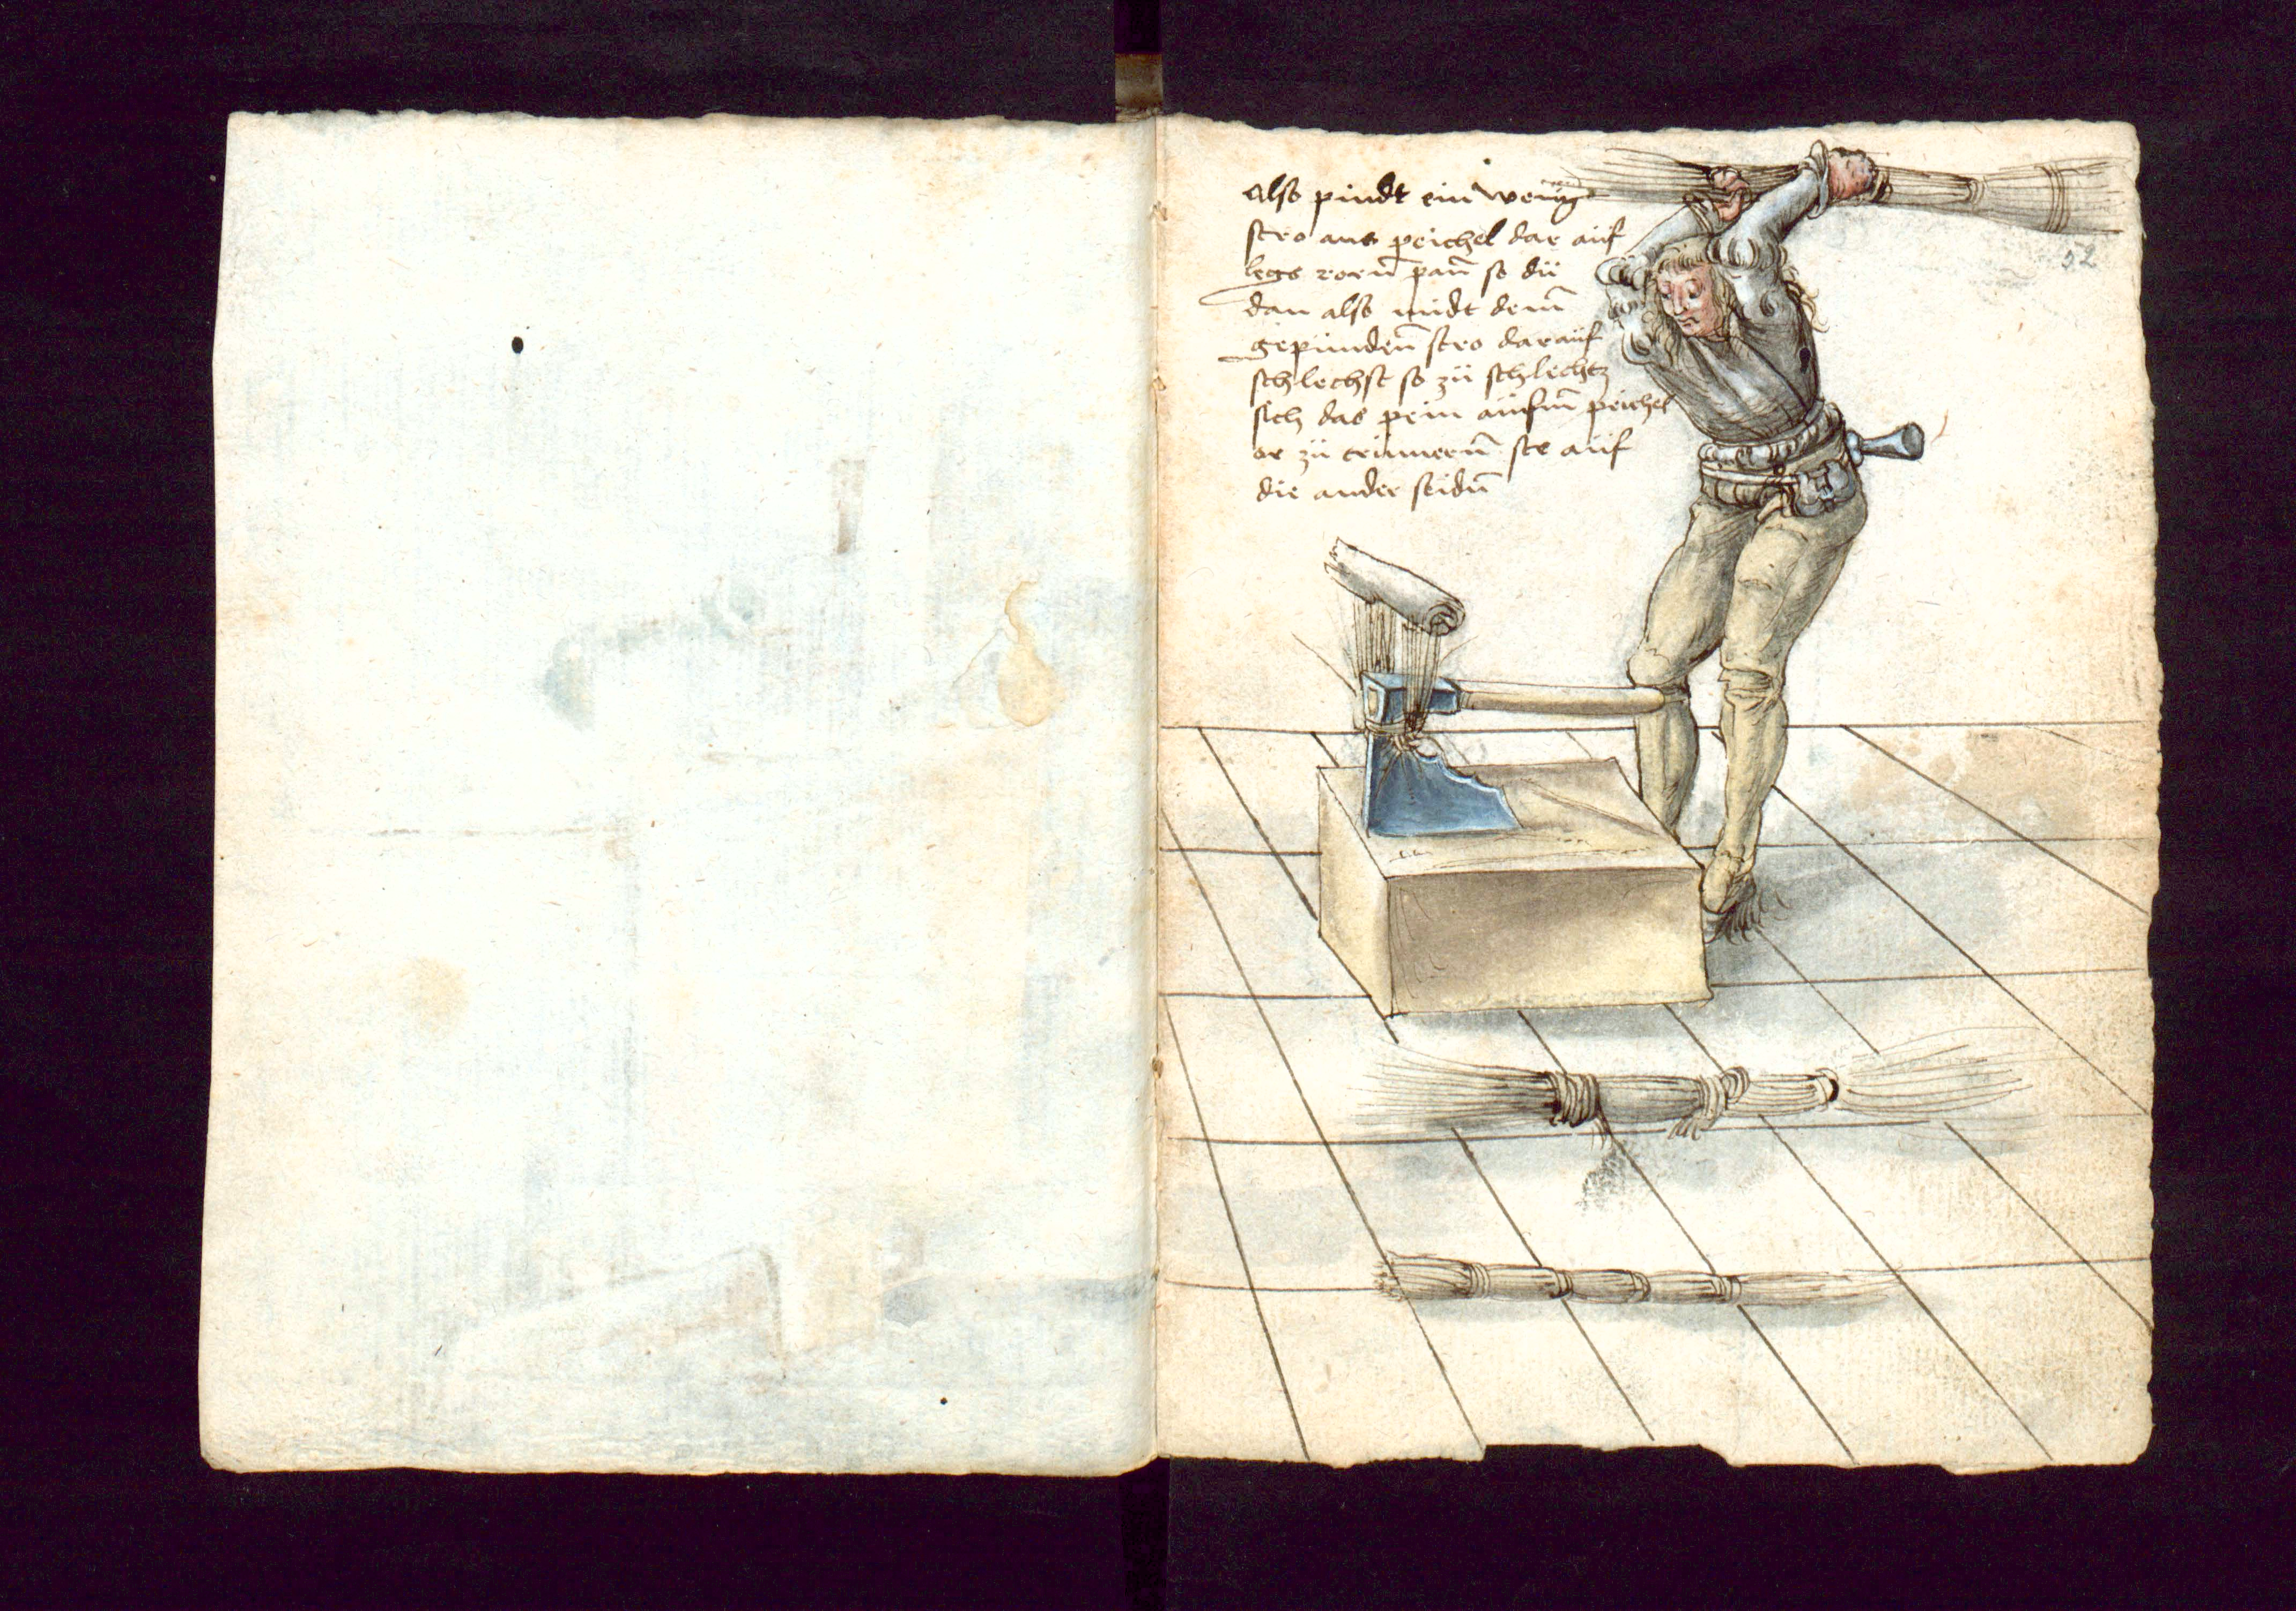 Also pindt ein wenig
stro ans peichel dar auf
legs rorn pain so dü
dan also midt dem̃
gepünden̄ stro darauf
schlechst so zü schlechtz
sich das pein aüfm̃ peichel
or zü trümern̄ ste auf
die ander seidn̄
52